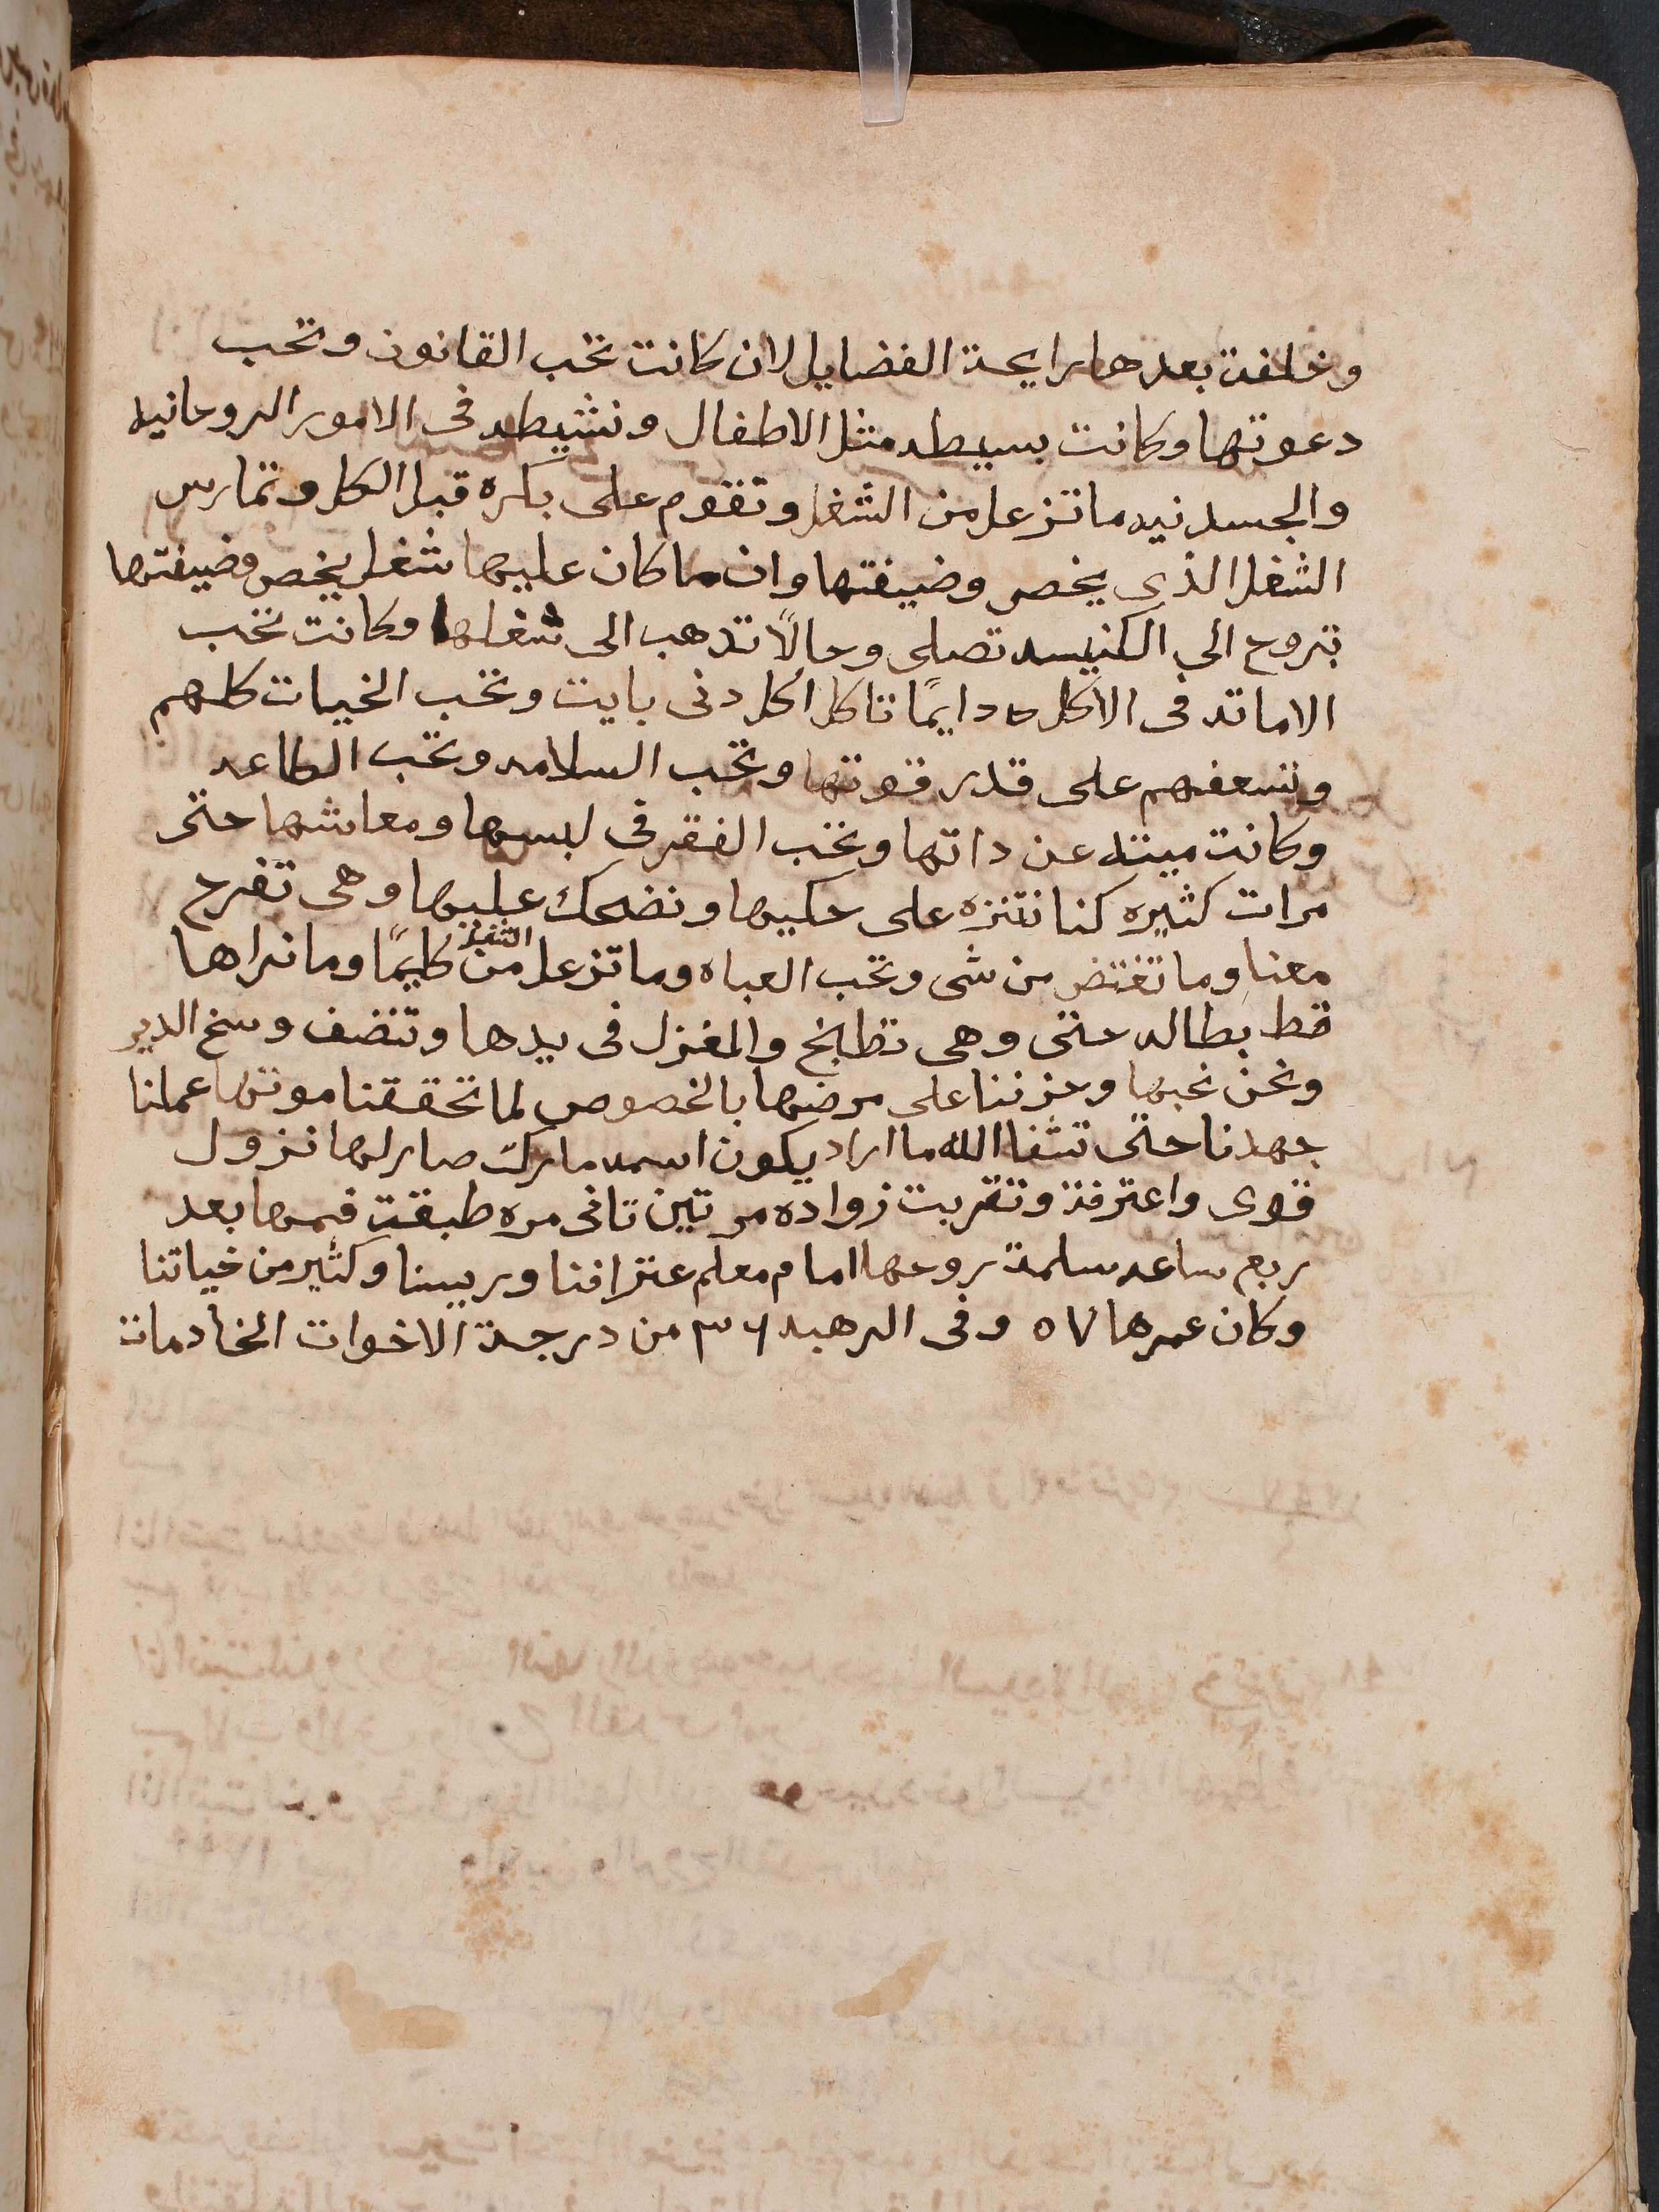 وخلفت بعدها رايحة الفضايل لان كانت تحب القانون وتحب
دعوتها وكانت بسيطه مثل الاطفال ونشيطه فى الامور الروحانيه
والجسدنيه ما تزعل من الشغل وتقوم على بكره قبل الكل وتمارس
الشغل الذى يخص وضيفتها وان ما كان عليها شغل يخص وضيفتها
تروح الى الكنيسه تصلى وحالاً تدهب الى شغلها وكانت تحب
الاماته فى الاكل دايمًا تاكل اكل دنى بايت وتحب الخيات كلهم
وتسعفهم على قدر قوتها وتحب السلامه وتحب الطاعه
وكانت ميته عن داتها وتحب الفقر فى لبسها ومعاشها حتى
مرات كثيره كنا نتنزه على حكيها ونضحك عليها وهى تفرح
معنا وما تغتض من شى وتحب العباه وما تزعل من التنفيذ كليمًا وما نراها
قط بطاله حتى وهى تطبخ والمغزل فى يدها وتنضف وسخ الدير
ونحن نحبها وحزننا على مرضها بالخصوص لما تحققنا موتها عملنا
جهدنا حتى تشفا الله ما اراد يكون اسمه مبارك صار لها نزول
قوى واعترفت وتقربت زواده مرتين تانى مره طبقت فمها بعد
ربع ساعه سلمة روحها امام معلم عترافنا وريسنا وكثير من خياتنا
وكان عمرها ٥٧ وفى الرهبه ٣٦ من درجة الاخوات الخادمات